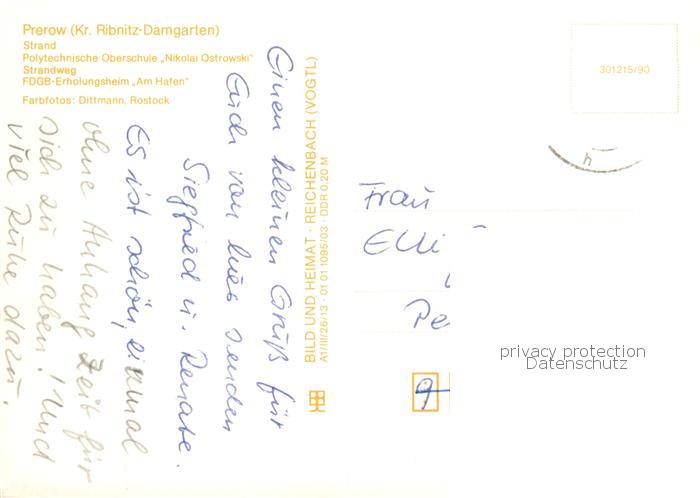 Prerow (Kr. Ribnitz-Damgarten)
Strand
Polytechnische Oberschule „Nikolai Ostrowski“
Strandweg
FDGB-Erholungsheim „Am Hafen“
Farbfotos: Dittmann, Rostock
Einen kleinen Gruß für
Euch von hier senden
Siegfried u. Renate.
Es ist schön, einmal
ohne Anhang Zeit für
sich zu haben! Und
viel Ruhe dazu.
BILD UND HEIMAT · REICHENBACH (VOGTL)
A1/III/26/13 · 01 01 1095/03 · DDR 0,20 M
301215/90
Frau
Elli
Pe
9
privacy protection
Datenschutz